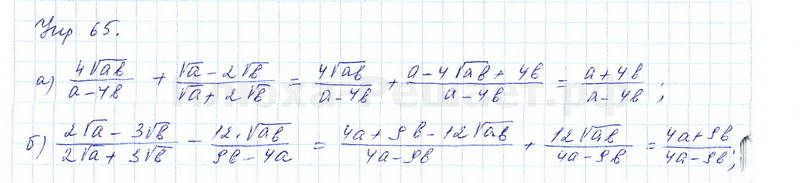 Упр 65.
а) \frac{4\sqrt{ab}}{a-4b} + \frac{\sqrt{a}-2\sqrt{b}}{\sqrt{a}+2\sqrt{b}} = \frac{4\sqrt{ab}}{a-4b} + \frac{a-4\sqrt{ab}+4b}{a-4b} = \frac{a+4b}{a-4b};
б) \frac{2\sqrt{a}-3\sqrt{b}}{2\sqrt{a}+3\sqrt{b}} - \frac{12\cdot\sqrt{ab}}{9b-4a} = \frac{4a+9b-12\sqrt{ab}}{4a-9b} + \frac{12\sqrt{ab}}{4a-9b} = \frac{4a+9b}{4a-9b};